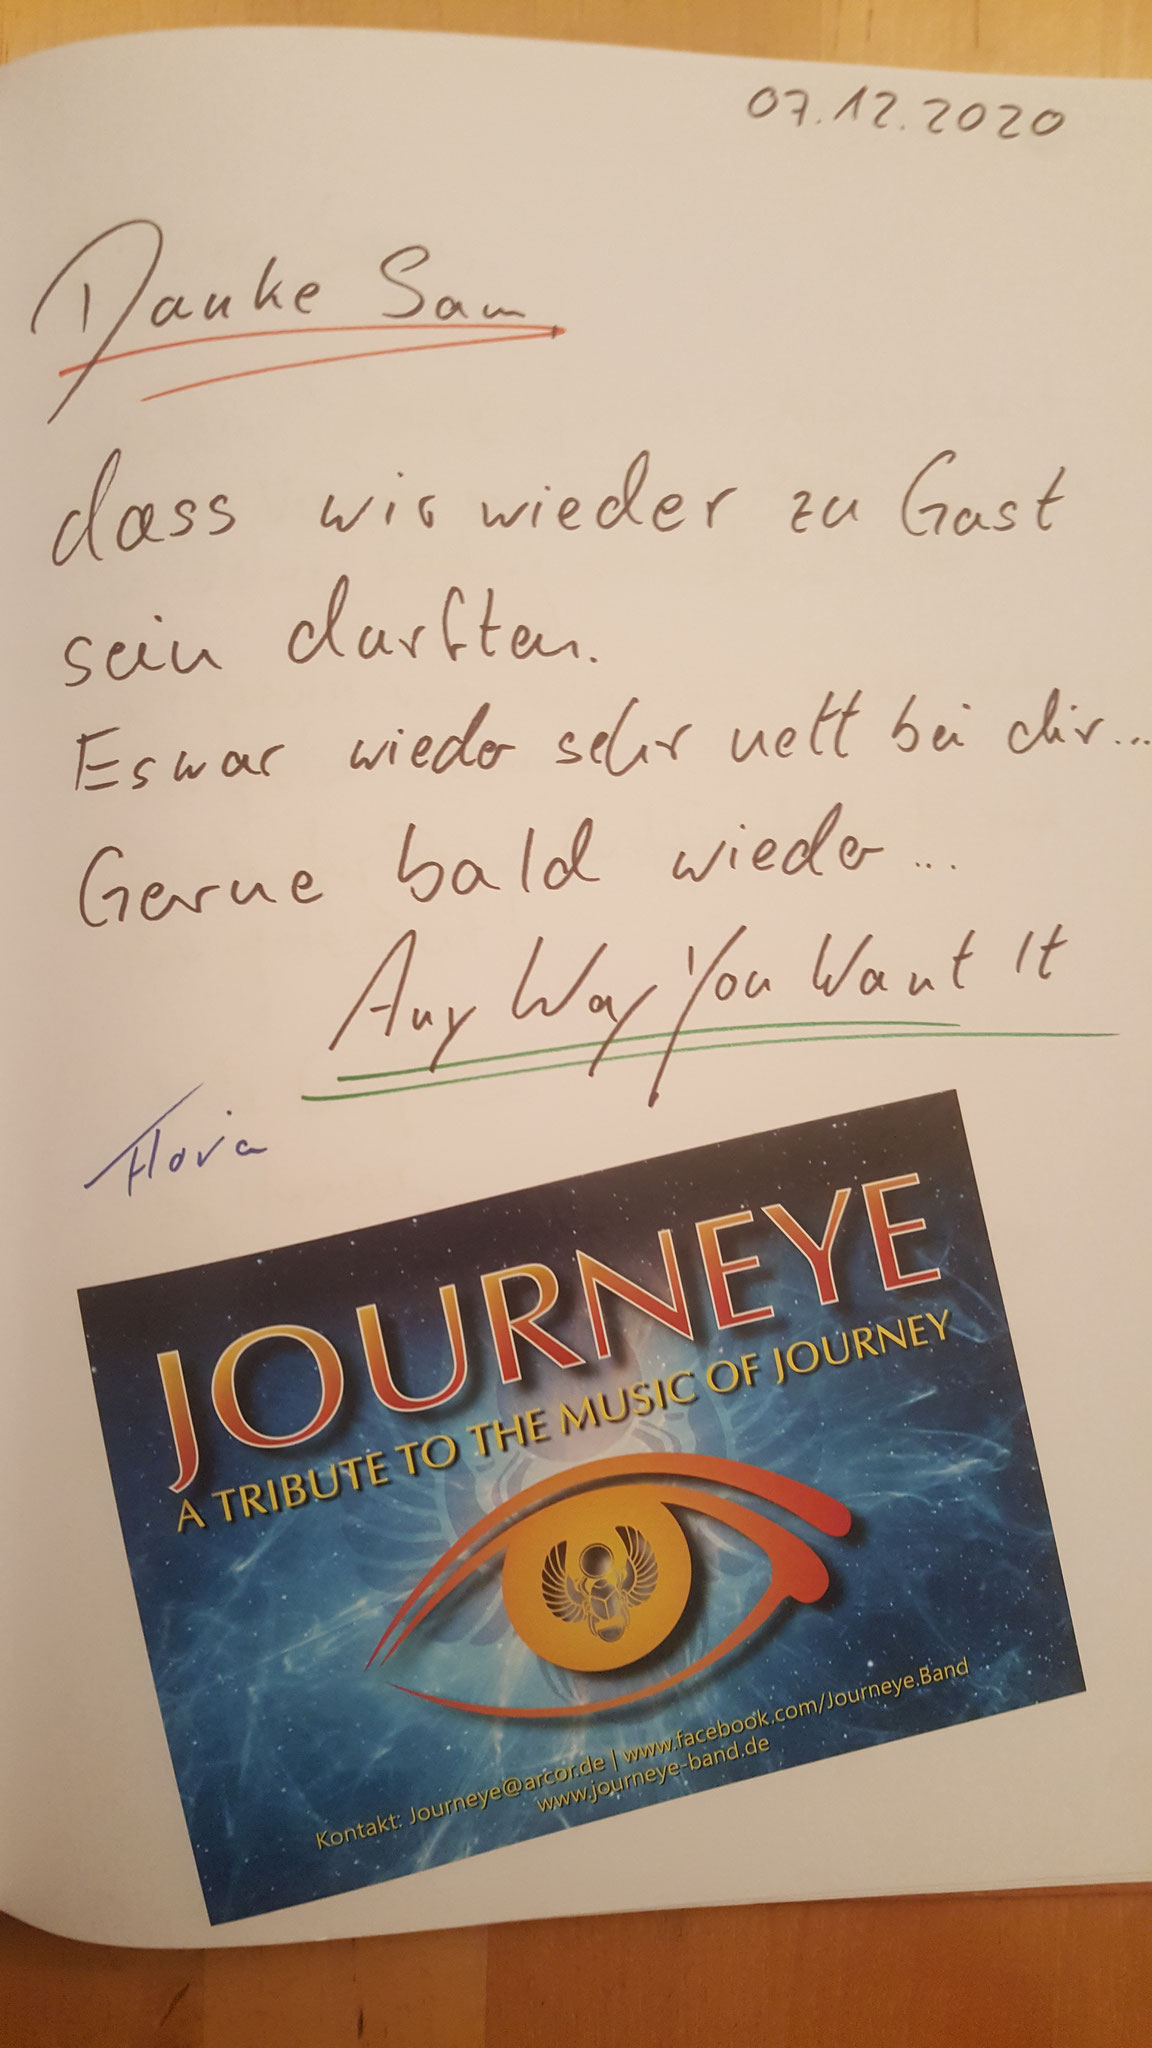 07.12.2020
Danke Sam
dass wir wieder zu Gast
sein durften.
Es war wieder sehr nett bei dir...
Gerne bald wieder...
Any Way You Want It
JOURNEYE
A TRIBUTE TO THE MUSIC OF JOURNEY
Kontakt: Journeye@arcor.de | www.facebook.com/Journeye.Band
www.journeye-band.de